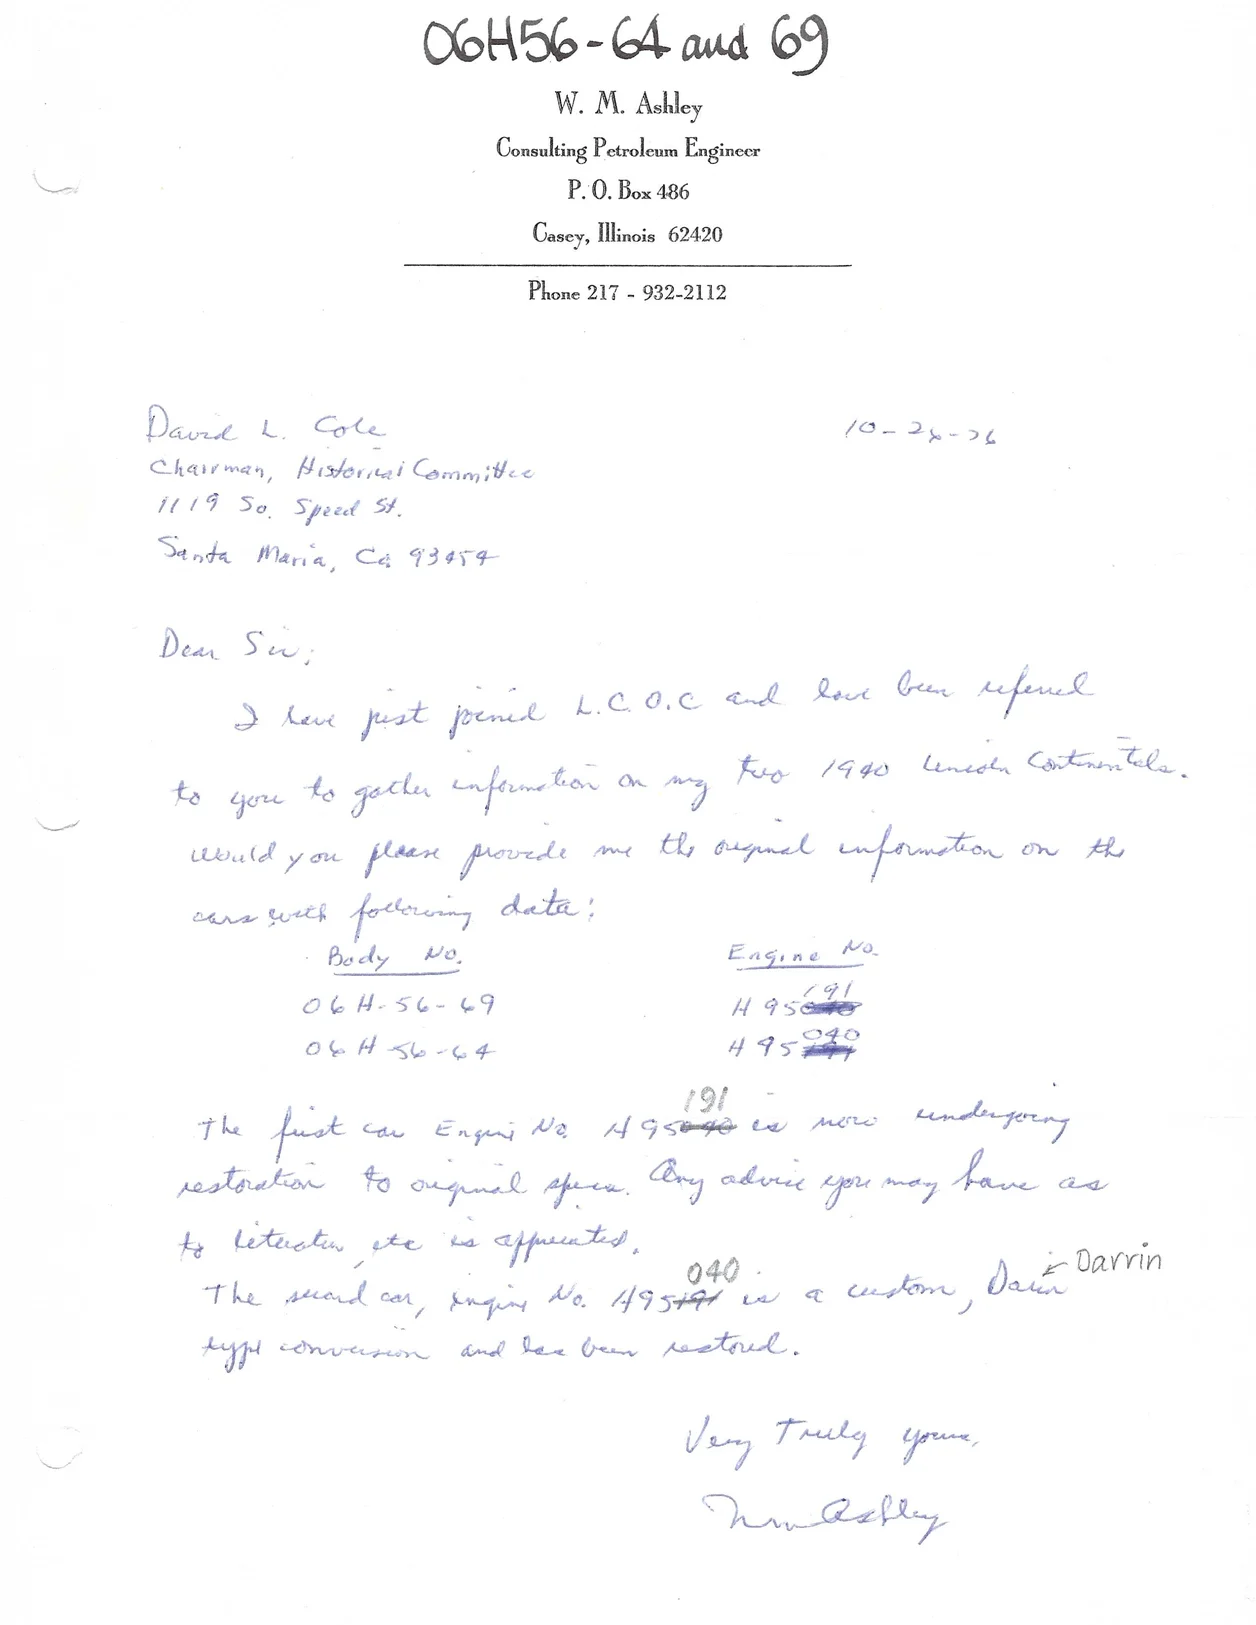 06H56-64 and 69
W. M. Ashley
Consulting Petroleum Engineer
P. O. Box 486
Casey, Illinois 62420
Phone 217 - 932-2112
David L. Cole
10-26-76
Chairman, Historical Committee
1119 So. Speed St.
Santa Maria, Ca 93454
Dear Sir;
I have just joined L.C.O.C and have been referred
to you to gather information on my two 1940 Lincoln Continentals.
Would you please provide me the original information on the
cars with following data:
Body No. Engine No.
191
06H-56-69 H95040
040
06H56-64 H95191
191
The first car Engine No. H95040 is now undergoing
restoration to original specs. Any advice you may have as
to literature, etc is appreciated.
040 Darrin
The second car, engine No. H95191 is a custom, Darin
type conversion and has been restored.
Very Truly yours,
Wm Ashley